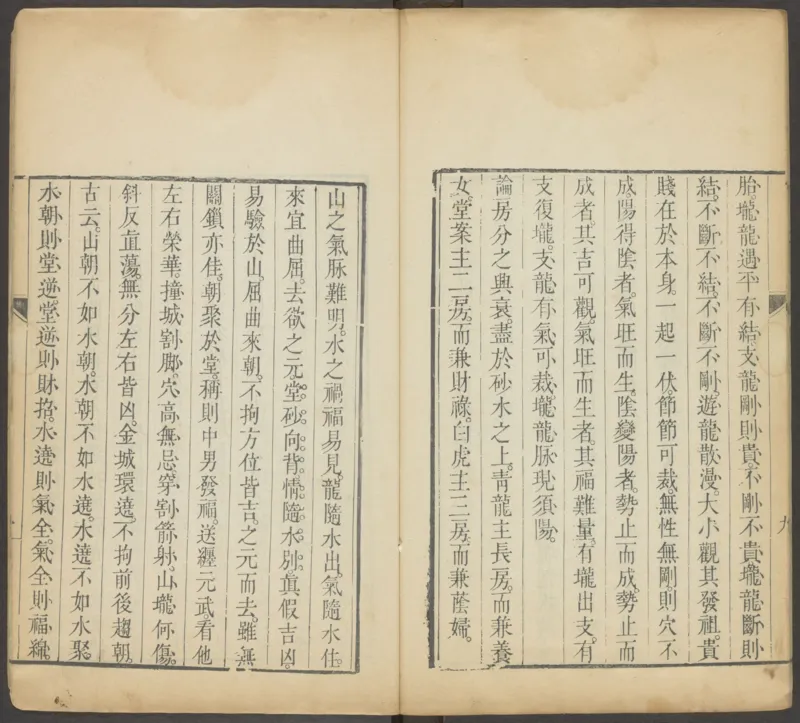 胎。壠龍遇平有結。支龍剛則貴。不剛不貴。壠龍斷則
結。不斷不結。不斷不剛。遊龍散漫。大小觀其發祖。貴
賤在於本身。一起一伏。節節可裁。無性無剛。則穴不
成。陽得陰者。氣旺而生。陰變陽者。勢止而成。勢止而
成者。其吉可觀。氣旺而生者。其福難量。有壠出支。有
支復壠。支龍有氣可裁。壠龍脉現須陽。
論房分之興衰。盡於砂水之上。靑龍主長房。而兼養
女。堂案主二房。而兼財祿。白虎主三房。而兼蔭婦。
山之氣脉難明。水之禍福易見。龍隨水出。氣隨水住。
來宜曲屈。去欲之元。堂砂向背。情隨水別。眞假吉凶。
易驗於山。屈曲來朝。不拘方位皆吉。之元而去。雖無
關鎖亦佳。朝聚於堂。稱則中男發福。送纏元武。看他
左右榮華。撞城割脚。穴高無忌。穿割箭射。山壠何傷。
斜反直蕩。無分左右皆凶。金城環遶。不拘前後趨朝。
古云。山朝不如水朝。水朝不如水遶。水遶不如水聚。
水朝則堂逆。堂逆則財捨。水遶則氣全。氣全則福綿。